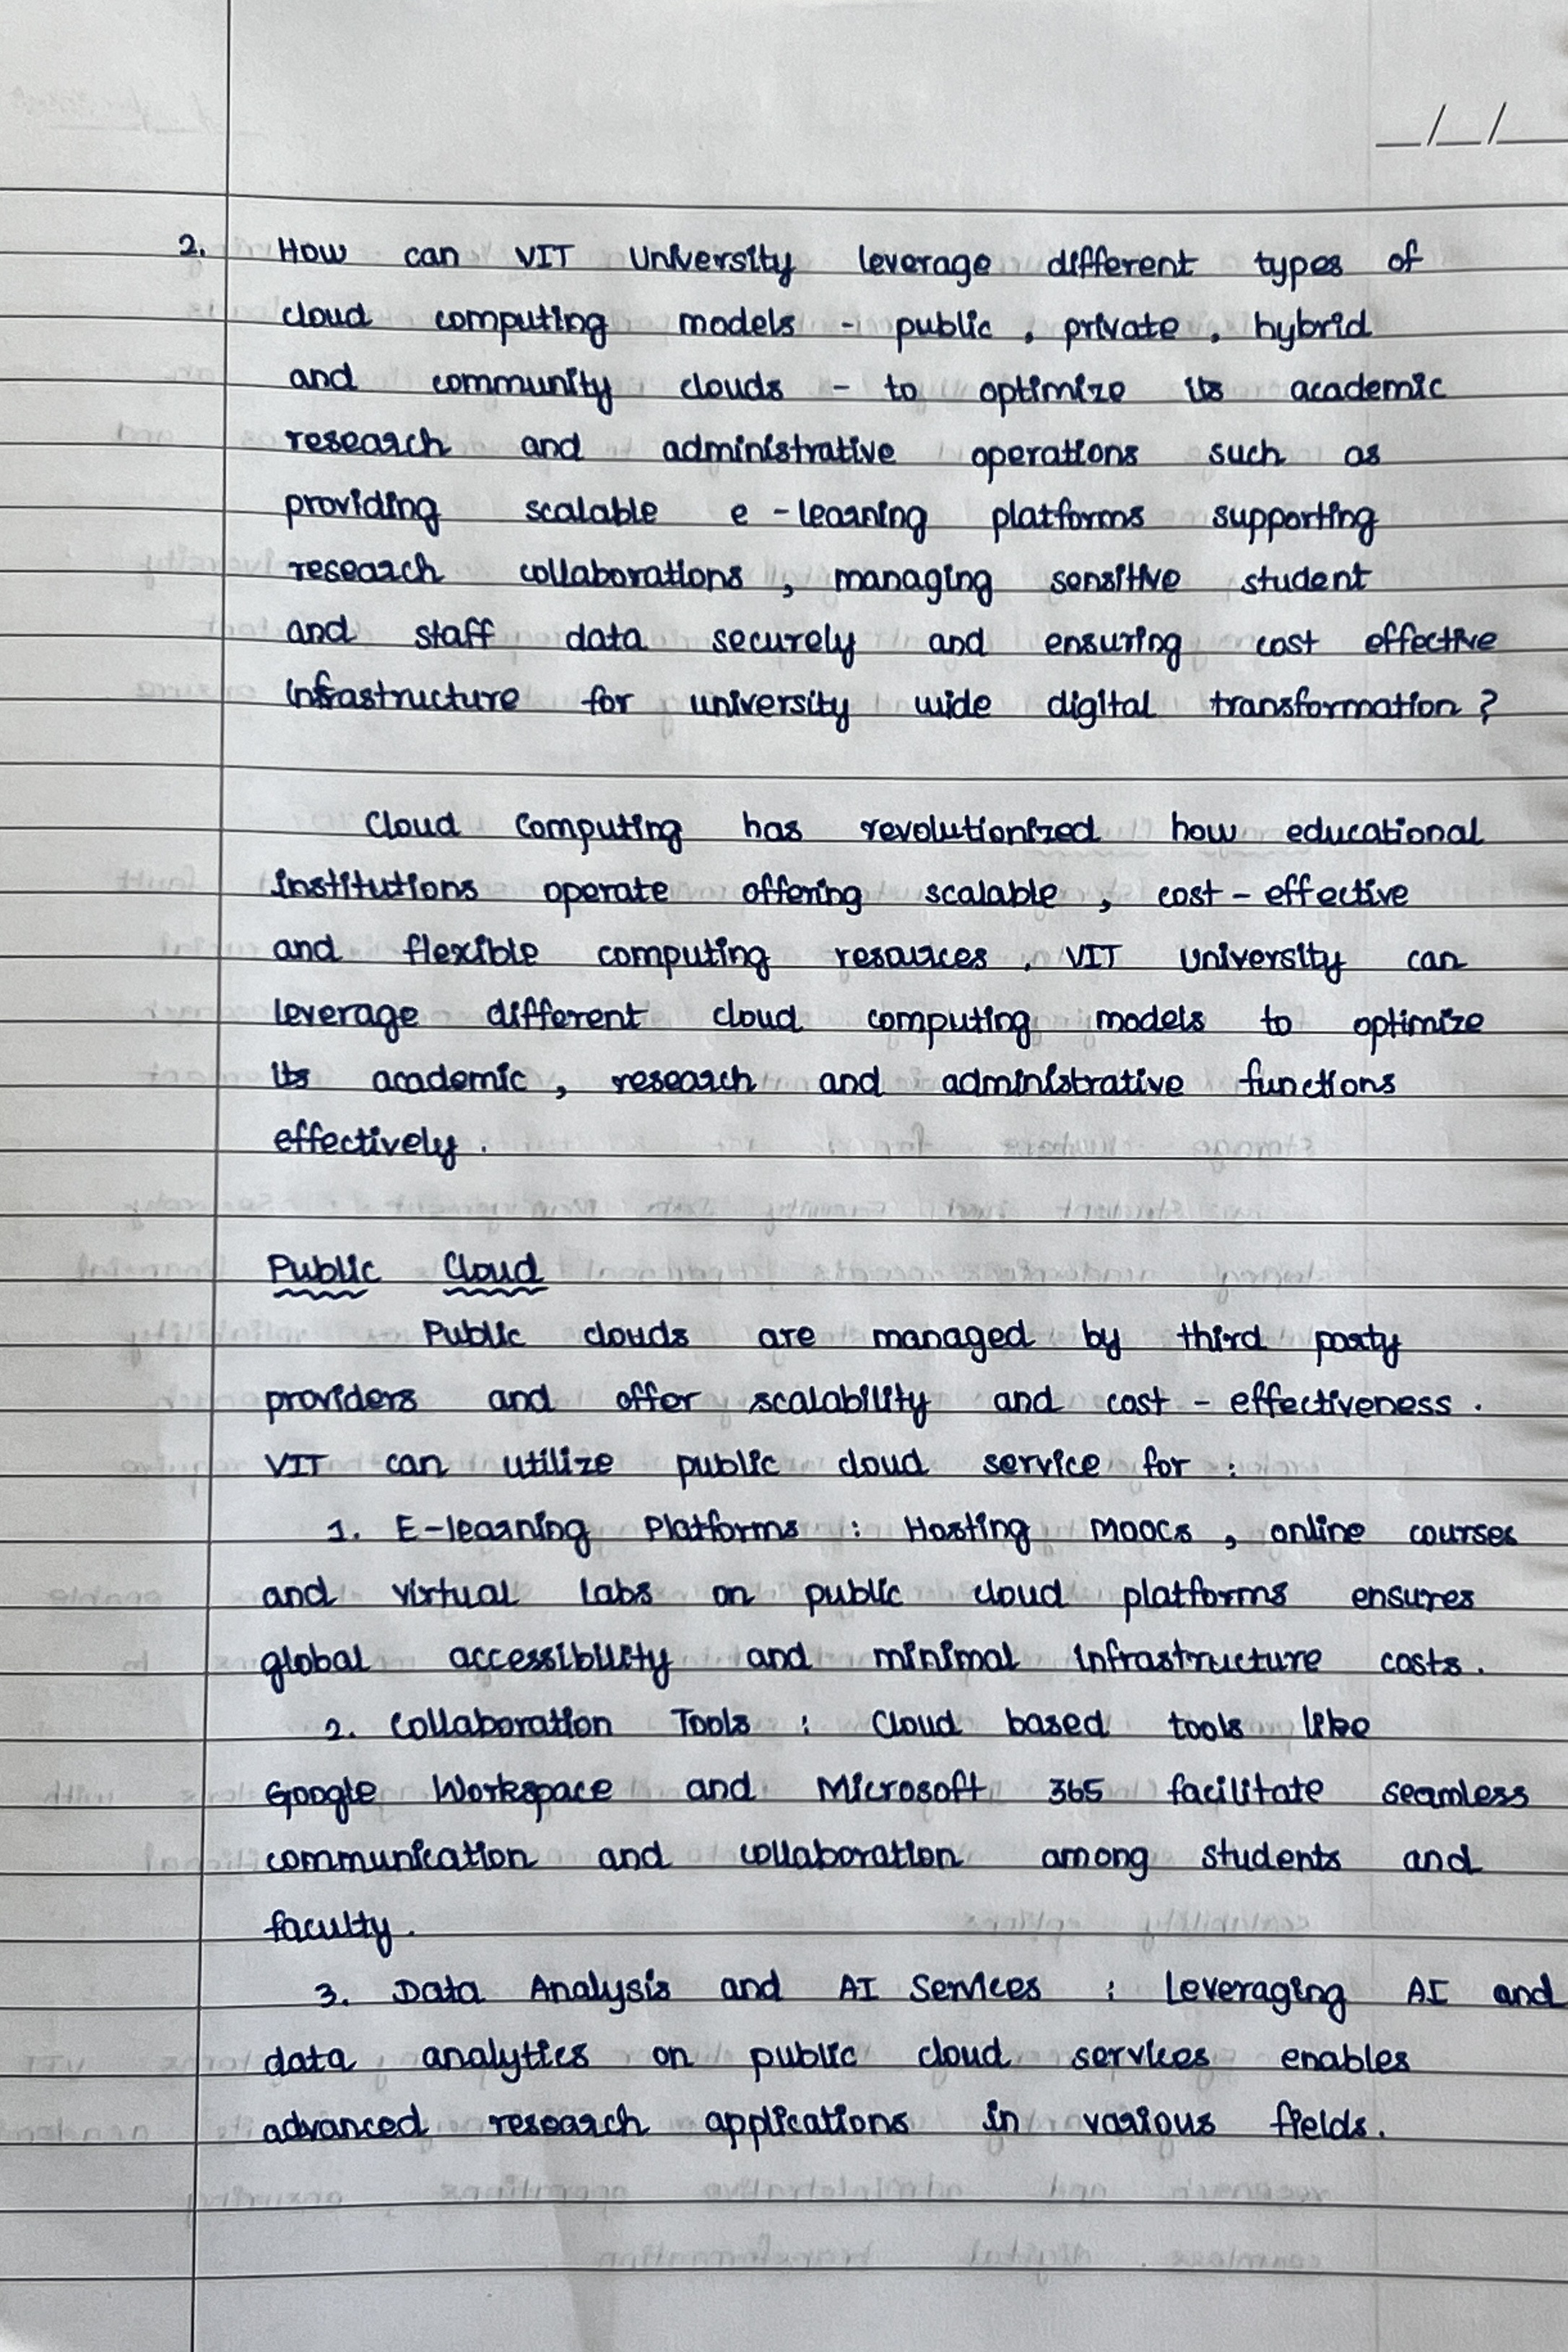 __/__/__
2. How can VIT University leverage different types of
cloud computing models - public , private , hybrid
and community clouds - to optimize its academic
research and administrative operations such as
providing scalable e - learning platforms supporting
research collaborations , managing sensitive student
and staff data securely and ensuring cost effective
infrastructure for university wide digital transformation ?
Cloud Computing has revolutionized how educational
institutions operate offering scalable , cost - effective
and flexible computing resources . VIT University can
leverage different cloud computing models to optimize
its academic , research and administrative functions
effectively .
Public Cloud
Public clouds are managed by third party
providers and offer scalability and cost - effectiveness .
VIT can utilize public cloud service for :
1. E-learning Platforms : Hosting MOOCs , online courses
and virtual Labs on public cloud platforms ensures
global accessibility and minimal infrastructure costs .
2. Collaboration Tools : Cloud based tools like
Google Workspace and Microsoft 365 facilitate seamless
communication and collaboration among students and
faculty .
3. Data Analysis and AI Services : Leveraging AI and
data analytics on public cloud services enables
advanced research applications in various fields .